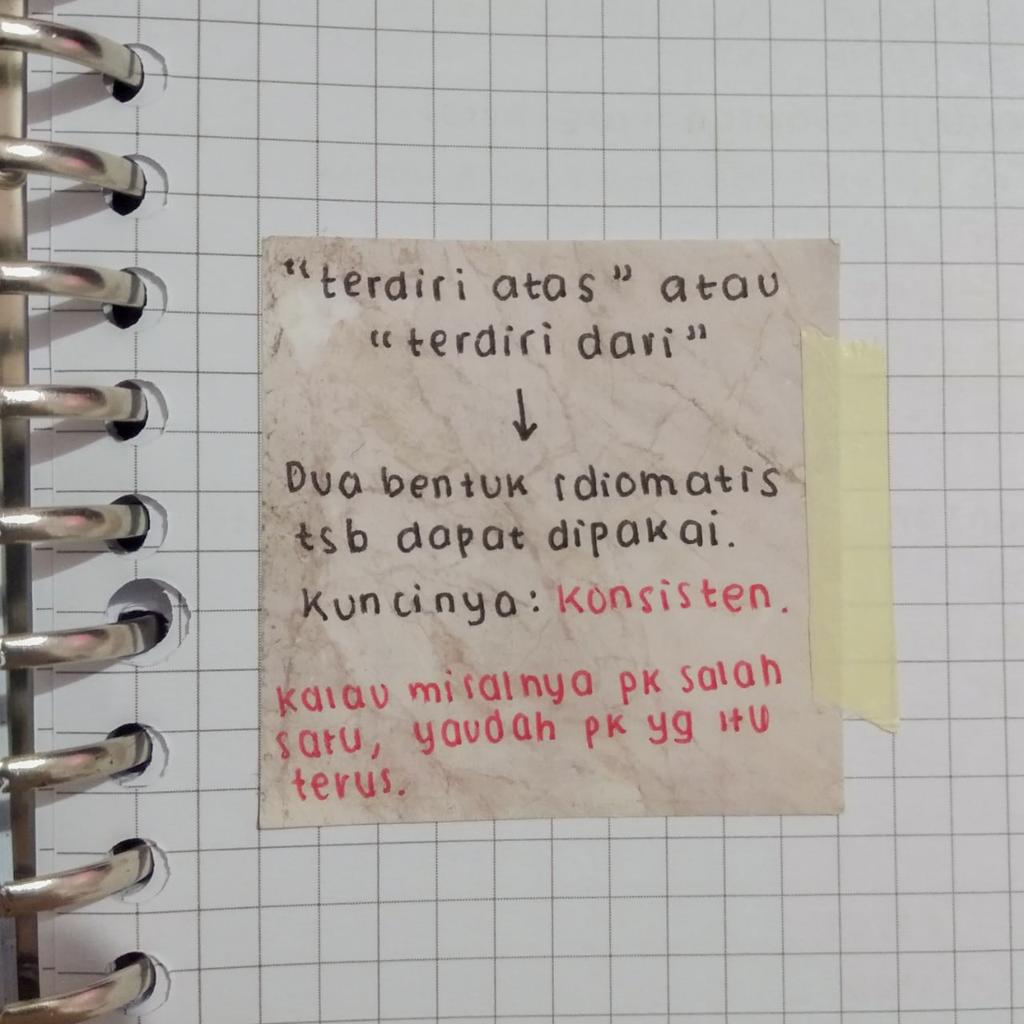 "terdiri atas" atau
"terdiri dari"
↓
Dua bentuk idiomatis
tsb dapat dipakai.
Kuncinya: konsisten.
Kalau misalnya pk salah
satu, yaudah pk yg itu
terus.